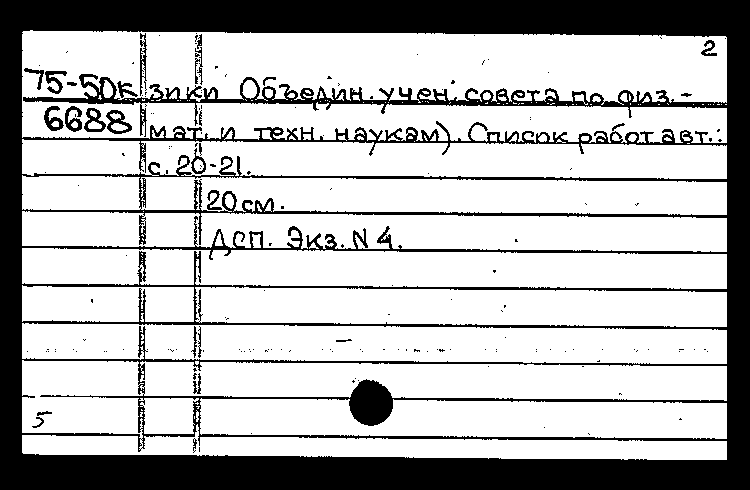 2
75-50к зики Объедин. учен. совета по физ.-
6688 мат. и техн. наукам). Список работ авт.:
с. 20-21.
20 см.
ДСП. Экз. N 4.
5